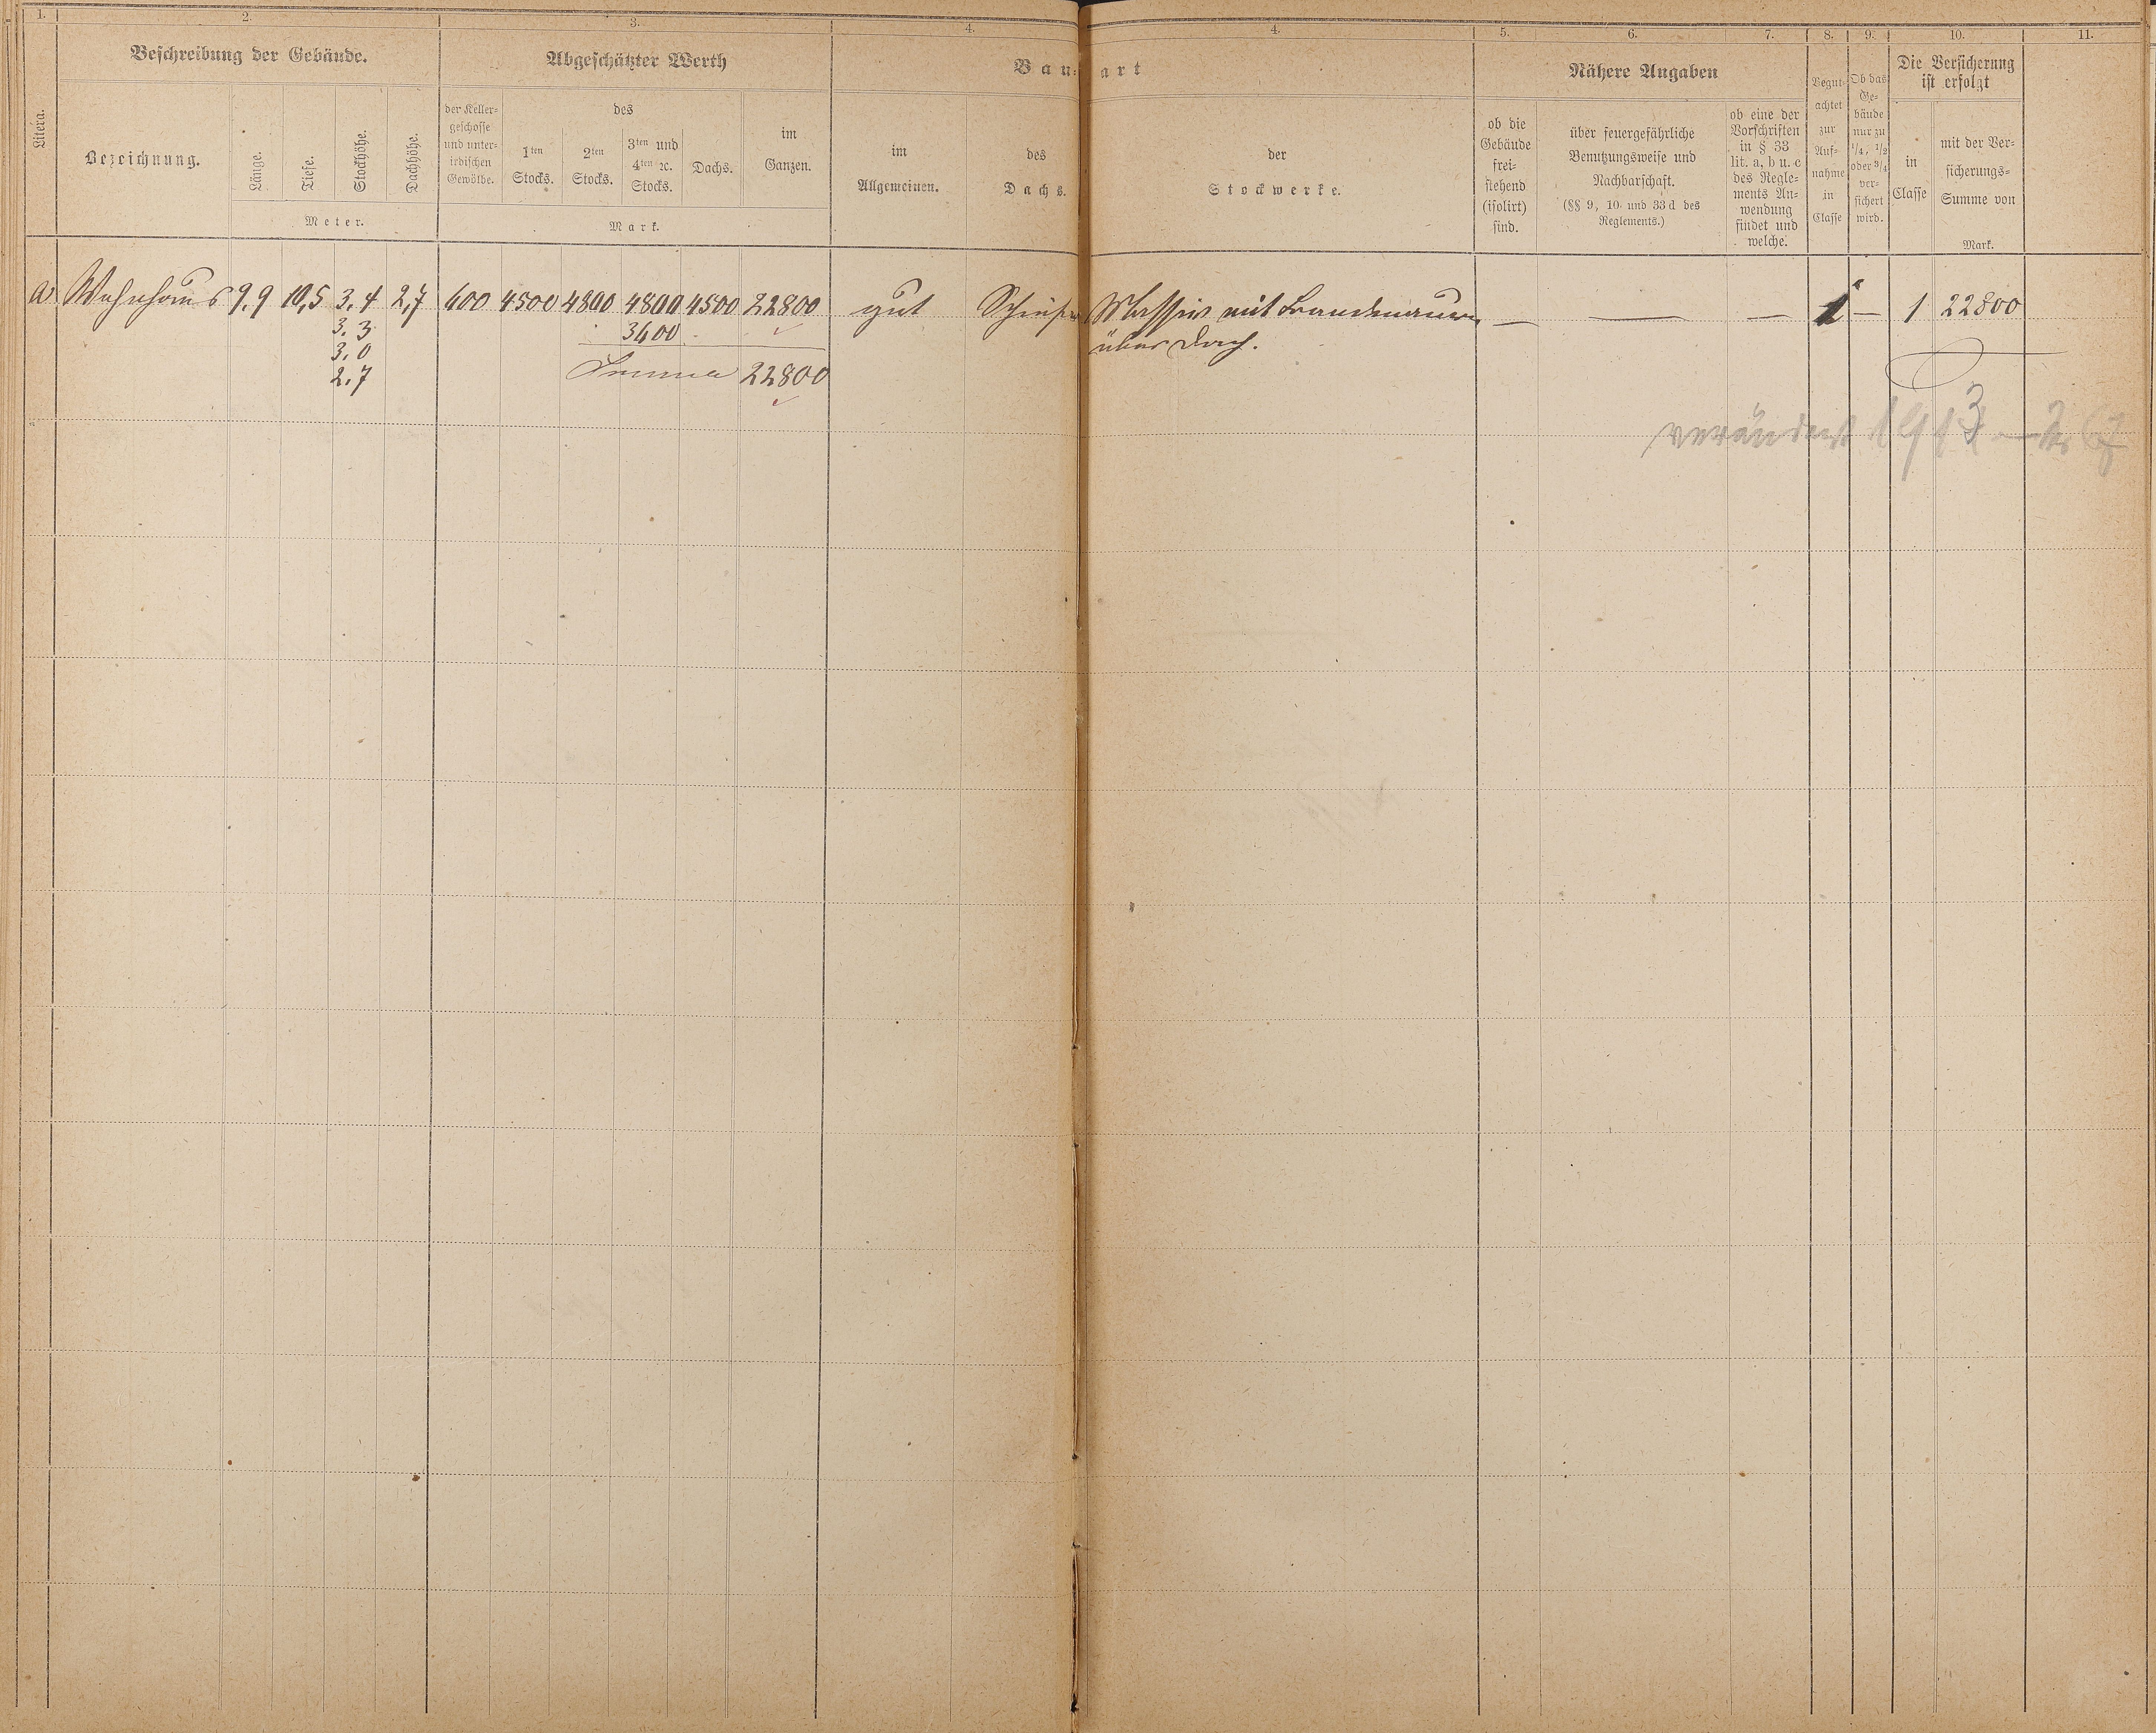 1. 2. 3. 4. 4. 5. 6. 7. 8. 9. 10. 11.
Litera.
Beschreibung der Gebäude.
Bezeichnung.
Länge.
Tiefe.
Stockhöhe.
Dachhöhe.
Meter.
Abgeschätzter Werth
der Keller-
geschosse
und unter-
irdischen
Gewölbe.
des
1ten
Stocks.
2ten
Stocks.
3ten und
4ten ꝛc.
Stocks.
Dachs.
im
Ganzen.
Mark.
Bau-art
im
Allgemeinen.
des
Dachs.
der
Stockwerke.
ob die
Gebäude
frei-
stehend
(isolirt)
sind.
Nähere Angaben
über feuergefährliche
Benutzungsweise und
Nachbarschaft.
(§§ 9, 10 und 33 d des
Reglements.)
ob eine der
Vorschriften
in § 33
lit. a, b u. c
des Regle-
ments An-
wendung
findet und
welche.
Begut-
achtet
zur
Auf-
nahme
in
Classe
Ob das
Ge-
bäude
nur zu
1/4, 1/2
oder 3/4
ver-
sichert
wird.
Die Versicherung
ist erfolgt
in
Classe
mit der Ver-
sicherungs-
Summe von
Mark.
a Wohnhaus 9,9 10,5 3,4 2,7 600 4500 4800 4800 4500 22800 gut Schiefer Massiv mit Brandmauern — — — 1 — 1 22800
3,3 3600 über Dach.
3,0
2,7 Summa 22800
verändert 1913